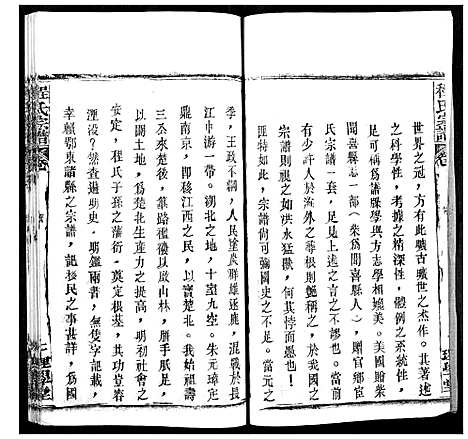 世界之冠，方有此曠古曠世之杰作。其著述
之科學性，考據之精深性，體例之系統性，
可見此籍爲諸縣學與方志學相媲美。美國贈柴
聞喜縣志一部（柴爲聞喜縣人），贈官鄉宦
氏宗譜一套，足見上述之言之不謬也。當前
有少許人於海外之尋根則艷稱之，於我國之
宗譜則視之如洪水猛獸，何其悖而愚也！
匪特如此，宗譜尚可彌國史之不足。當元之
季，王政不綱，人民塗炭群雄逐鹿，混戰於長
江中游一帶。湖北之地，十室九空。朱元璋定
鼎南京，即移江西之民，以實楚北。我始祖壽
三丕來楚後，篳路襤褸以啟山林，胼手胝足，
以闢土地，爲楚北生產力之提高，明初社會之
安定，程氏子孫之蕃衍，奠定根基，其功豈容
湮没？然查遍明史，明鑑兩書，無隻字記載，
幸賴鄂東諸縣之宗譜，記移民之事甚詳，爲國
程氏宗譜
理學堂